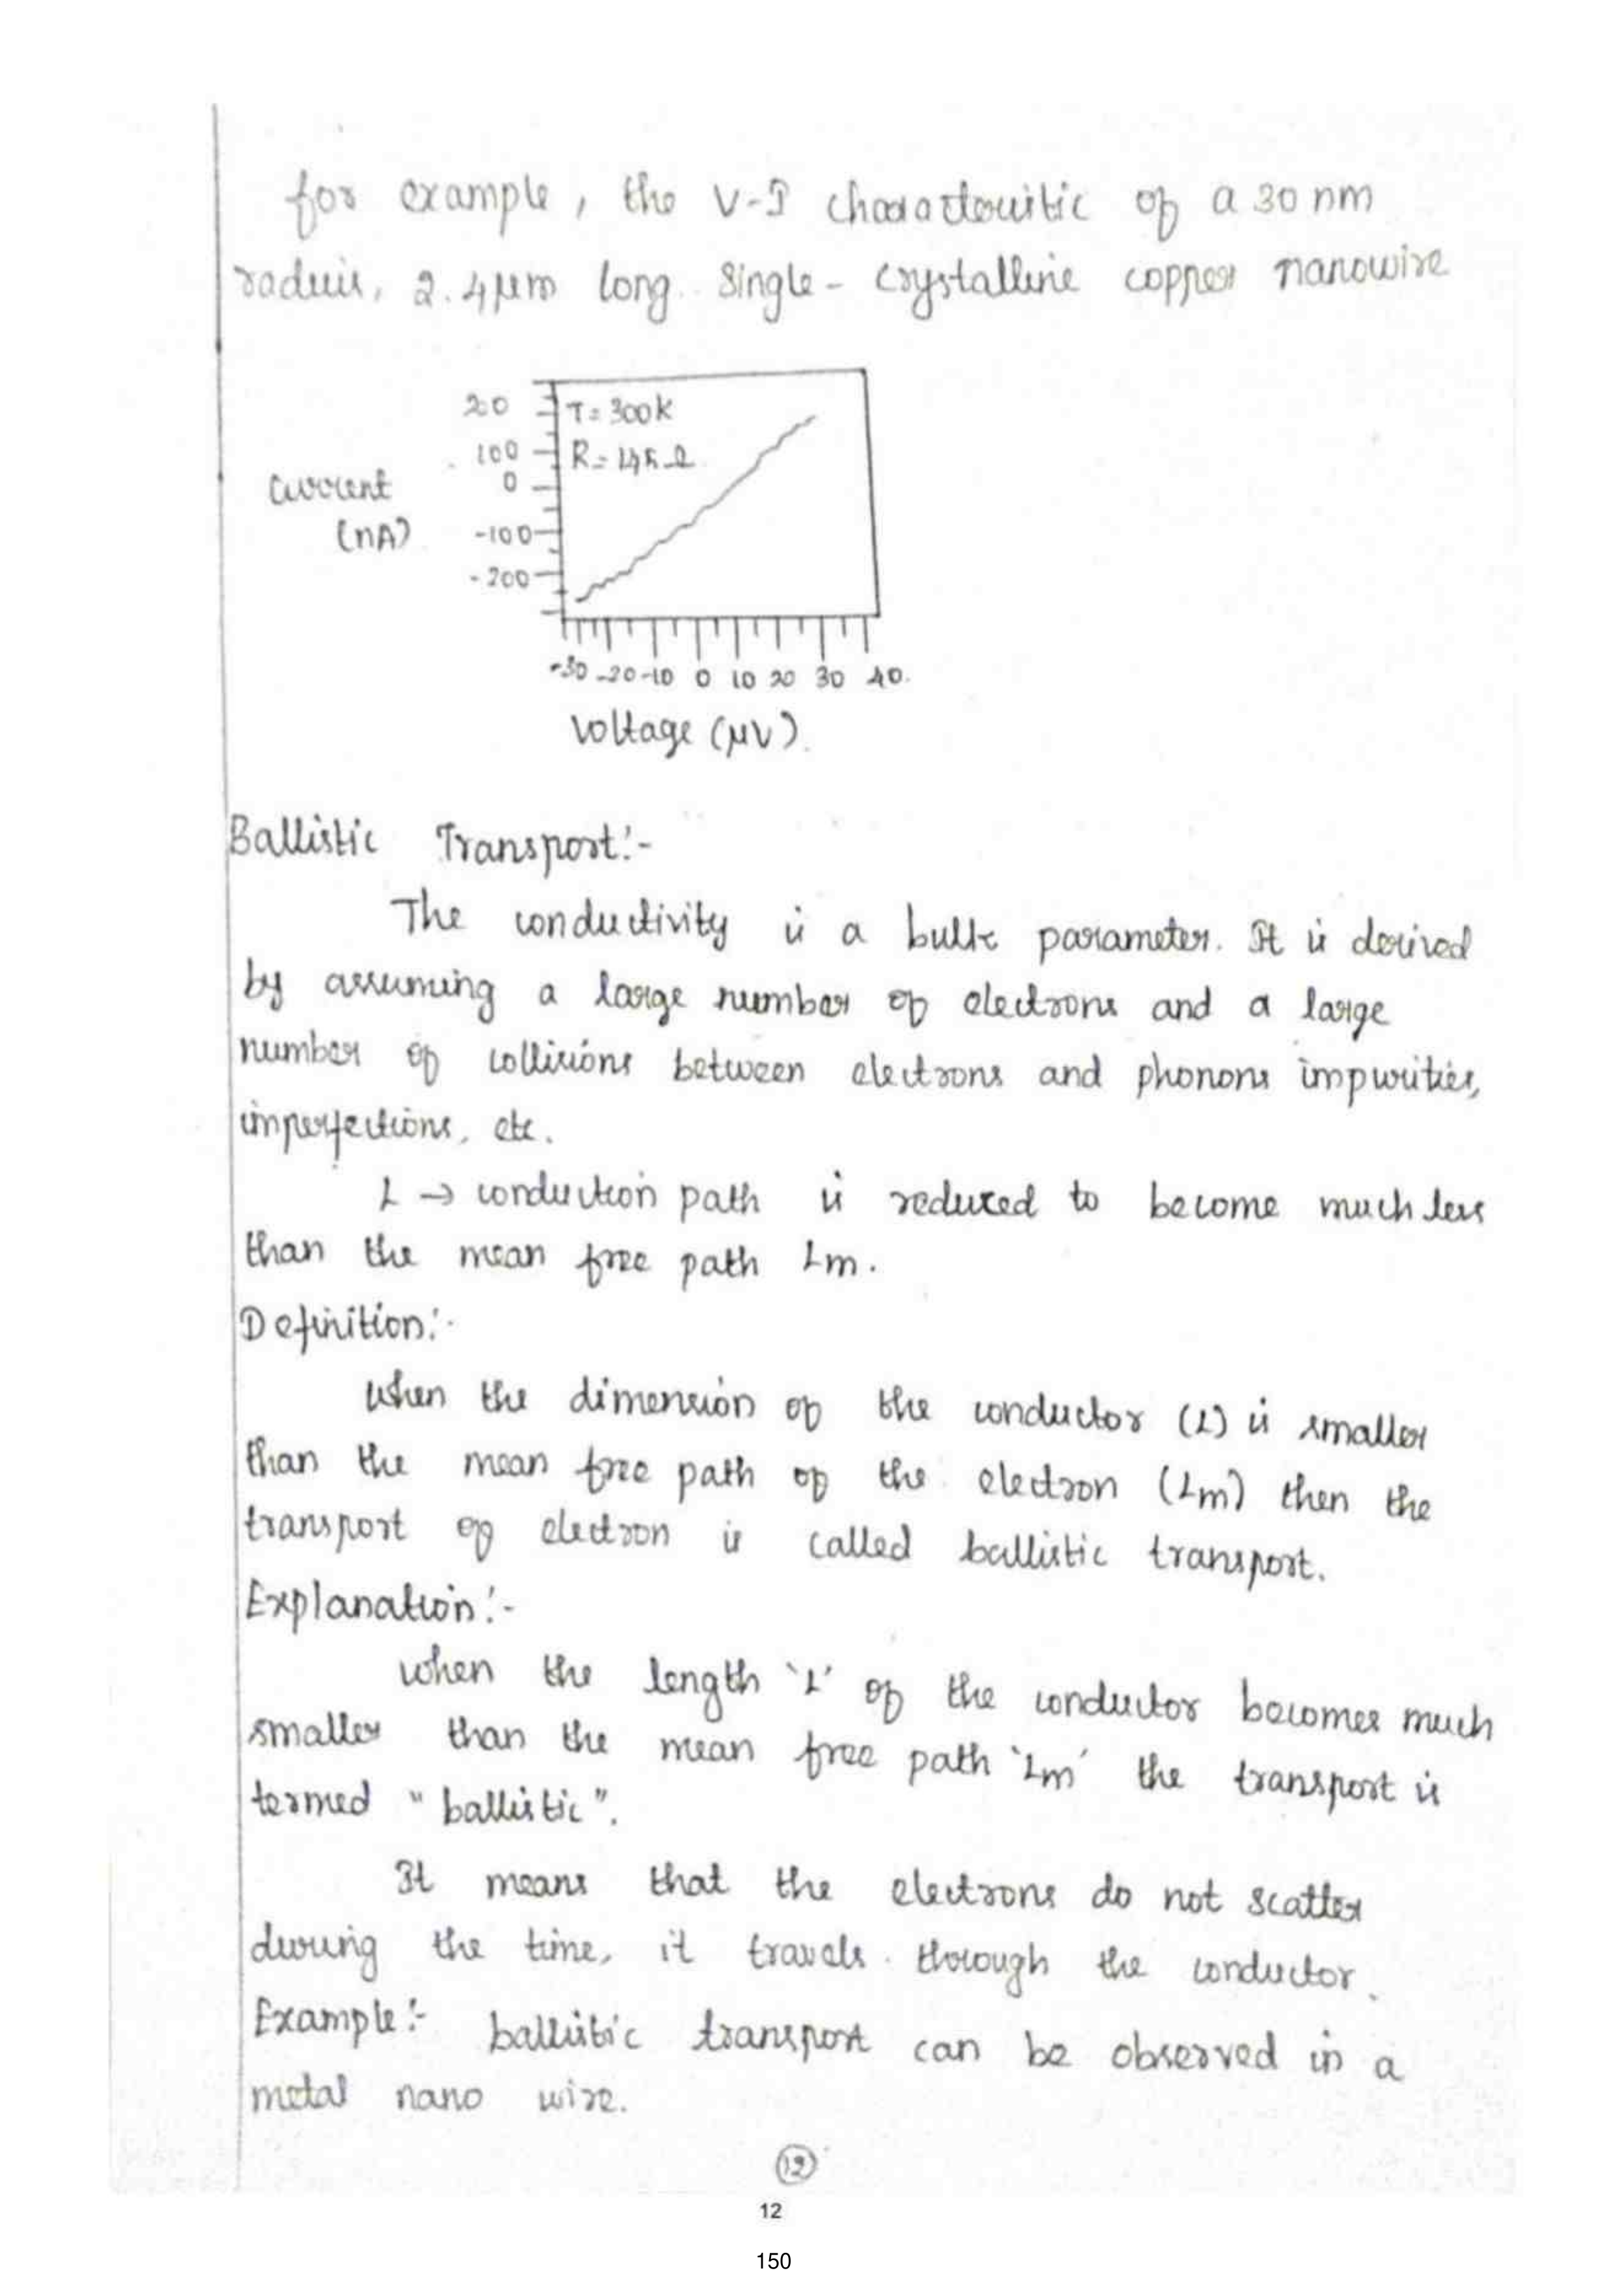 for example, the V-I charactouitic of a 30 nm
radius, 2.4μm long. Single - crystalline copper nanowire
200
T = 300k
100
R = 145 Ω
Current
0
(nA)
-100
-200
-30 -20 -10 0 10 20 30 40.
Voltage (μV).
Ballistic Transport:-
The conductivity is a bulk parameter. It is derived
by assuming a large number of electrons and a large
number of collisions between electrons and phonons impurities,
imperfections, etc.
L → conduction path is reduced to become much less
than the mean free path Lm.
Definition:-
When the dimension of the conductor (L) is smaller
than the mean free path of the electron (Lm) then the
transport of electron is called ballistic transport.
Explanation:-
When the length 'L' of the conductor becomes much
smaller than the mean free path 'Lm' the transport is
termed "ballistic".
It means that the electrons do not scatter
during the time, it travels through the conductor.
Example:- ballistic transport can be observed in a
metal nano wire.
12
12
150